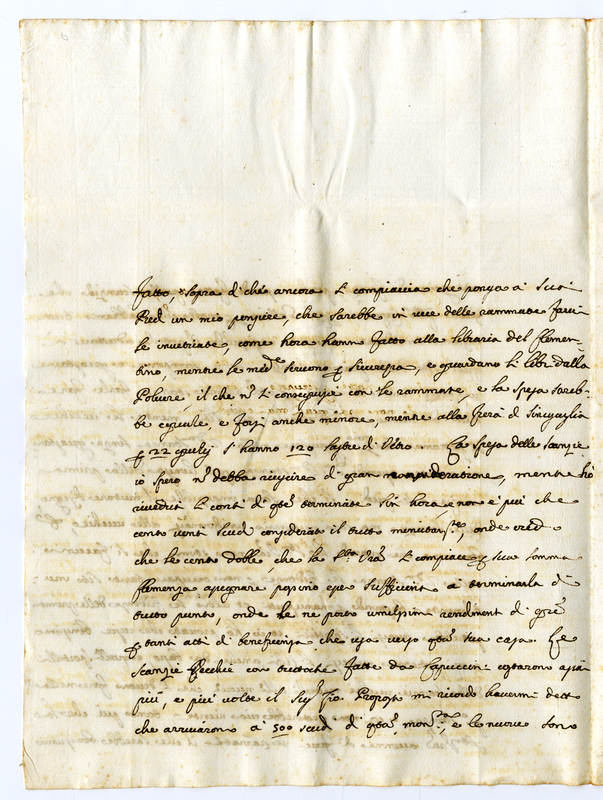 fatto, e sopra di che ancora si compiaccia che ponga a' suoi
Piedi un mio pensiere, che sarebbe in vece delle rammate farvi
le invetriate, come hora hanno fatto alla libraria del Clemen-
tino, mentre le med.e servono p sicurezza, e guardano li libri dalla
Polvere, il che nō si conseguisce con le rammate, e la spesa sareb-
be eguale, e forsi anche minore, mentre alla fiera di Sinigaglia
p 22 giulij si hanno 120 lastre di Vetro La spesa delle scanzie
io spero nō debba riuscire di gran consideratione, mentre hò
riveduti li conti di q̄te terminate sin hora e non è più che
cento venti scudi considerato il tutto minutam.te, onde credo
che le cento doble, che la S.tà V.ra si compiace p sua somma
Clemenza assegnare possino esser sufficienti a' terminarla di
tutto punto, onde ne porto umilissimi rendimenti di gr̄e
p tanti atti di beneficenza che usa verso q̄ta sua casa. Le
scanzie Vecchie con tuttoche fatte da Capuccini costarono assai
più, e più volte il Sig.r Prōposto mi ricordo havermi detto
che arrivarono a' 500 scudi di q̄ta mon.ta, e le nuove sono